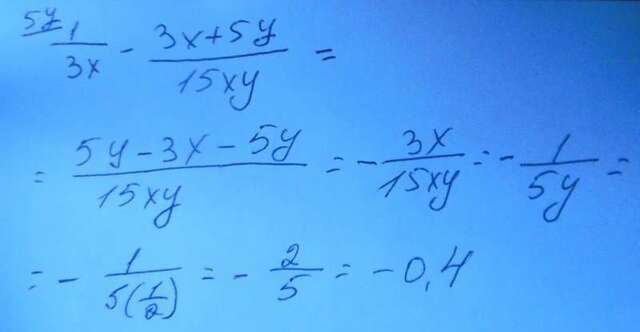 5y/ 1/3x - (3x+5y)/15xy =
= (5y-3x-5y)/15xy = - 3x/15xy = - 1/5y =
= - 1/5(1/2) = - 2/5 = -0,4